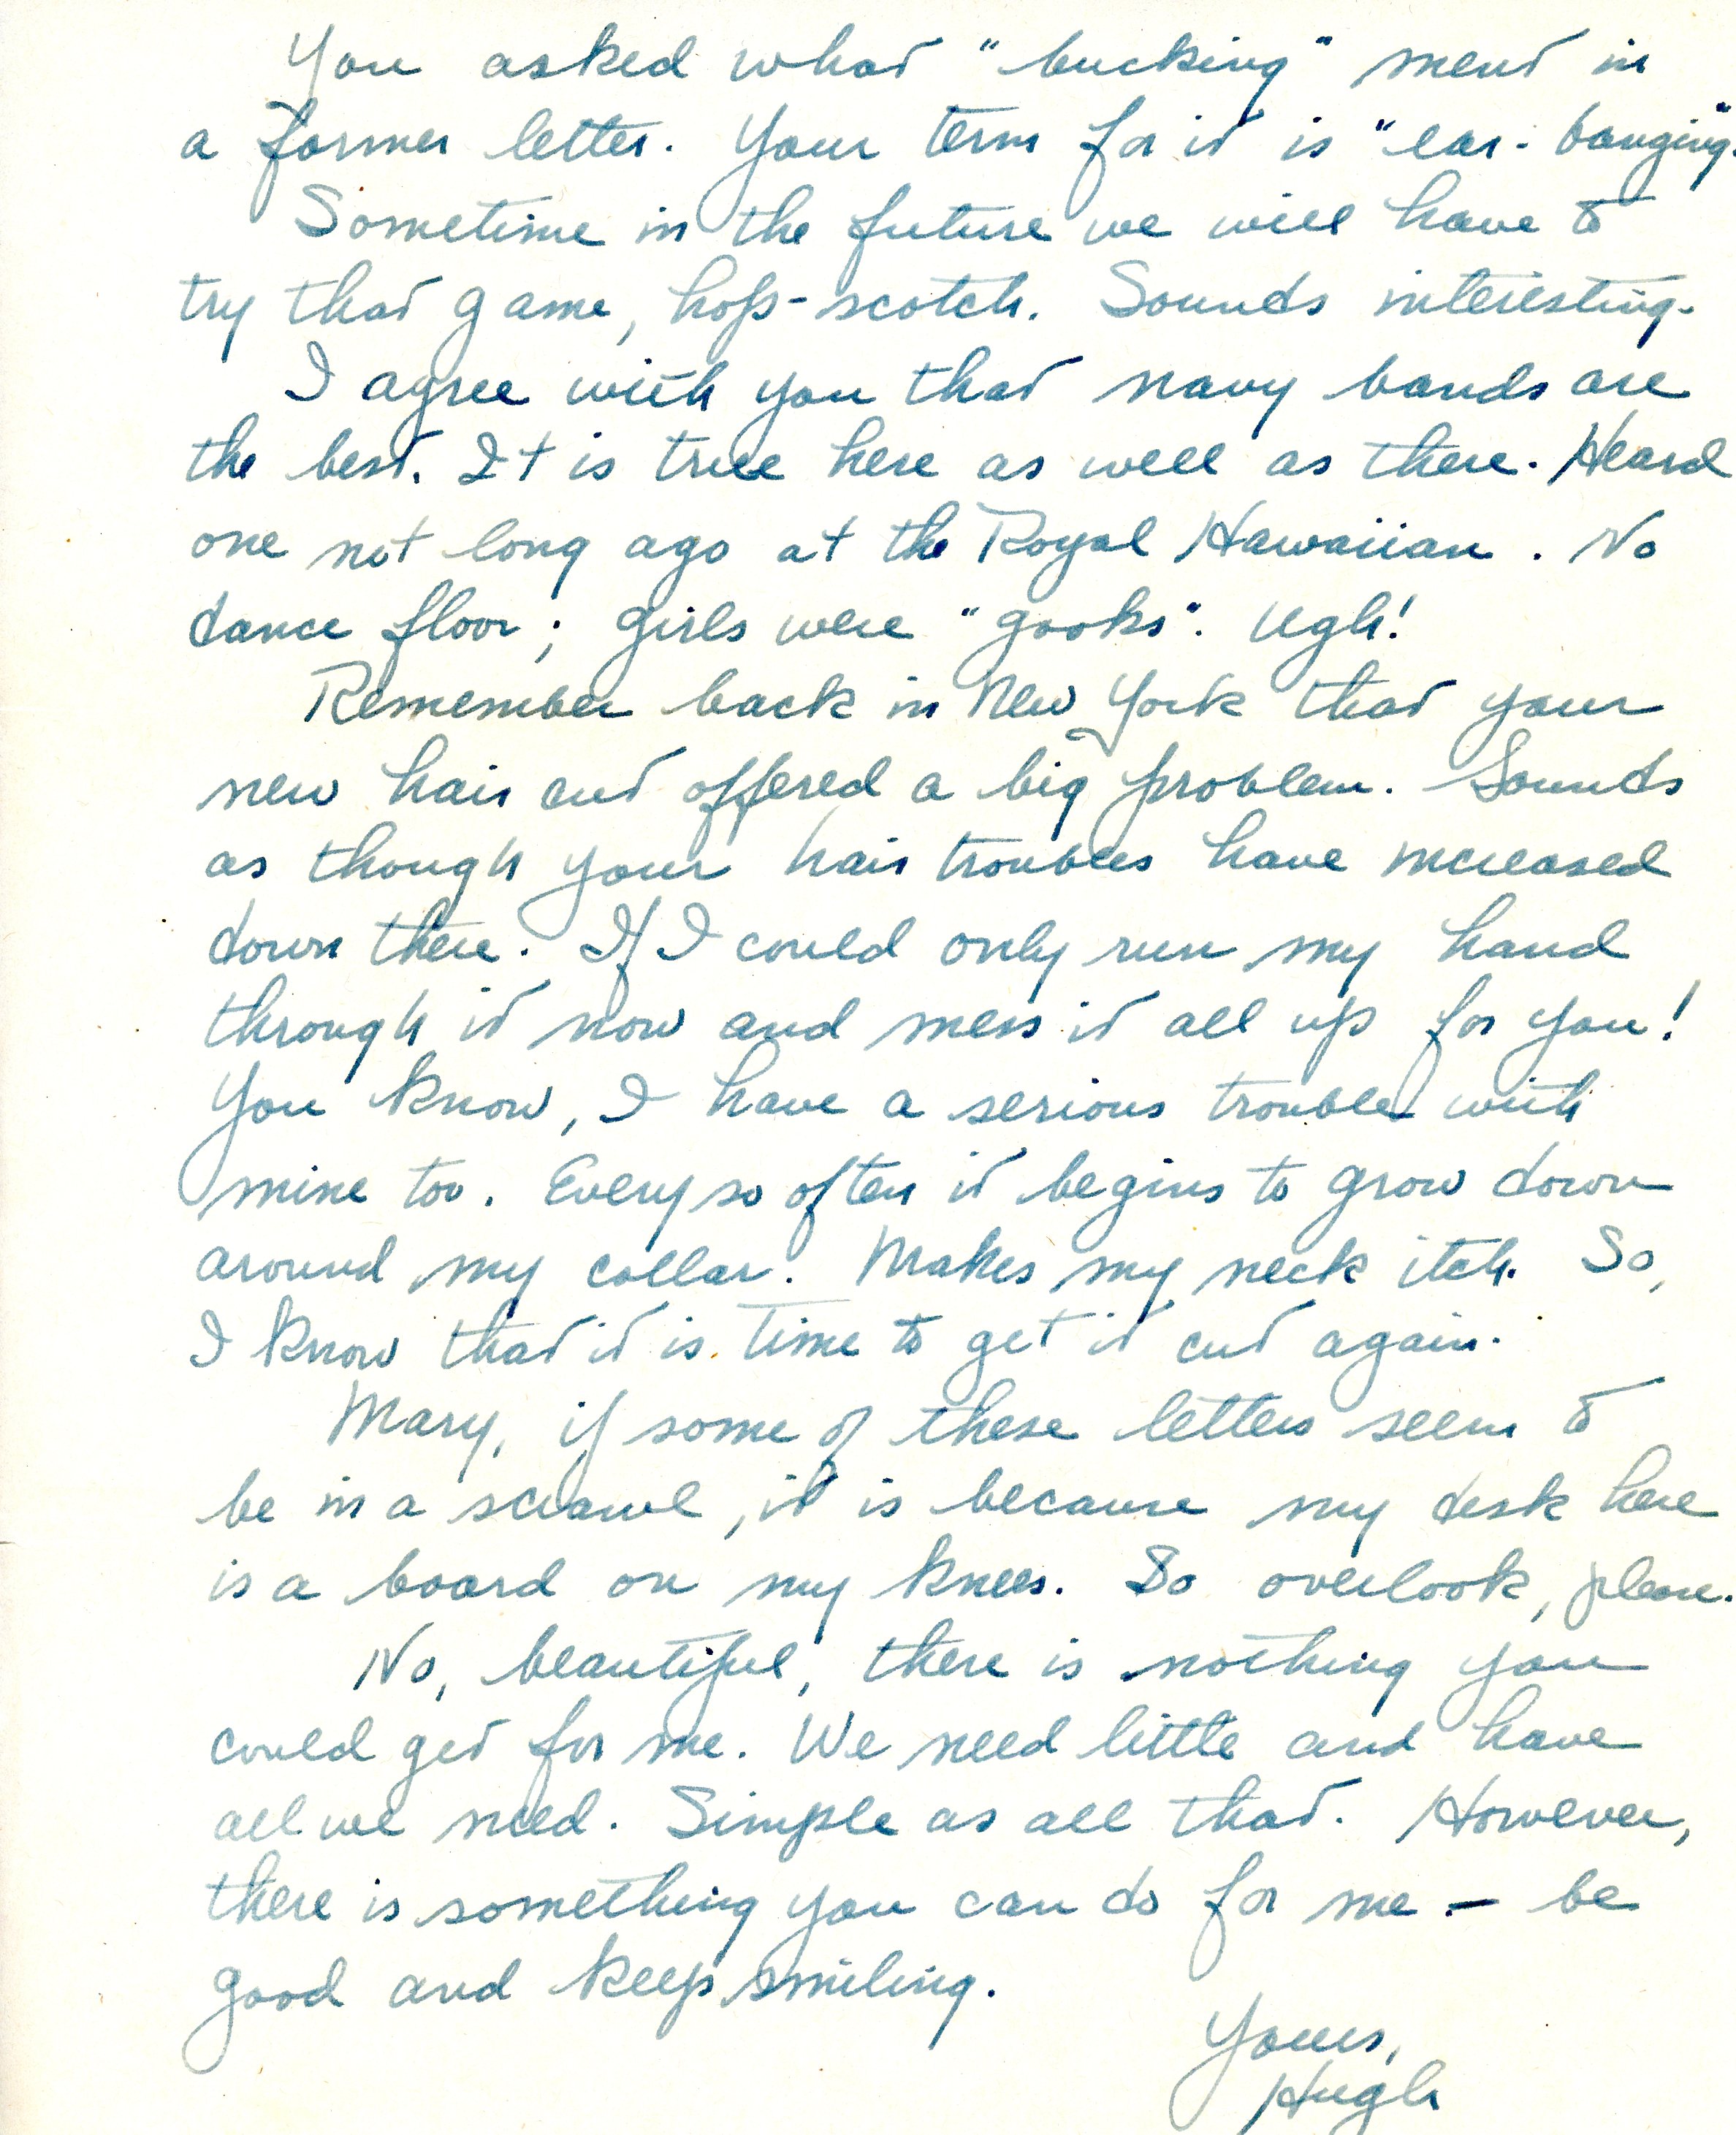 You asked what "bucking" ment in
a former letter. Your term for it is "ear-banging."
Sometime in the future we will have to
try that game, hop-scotch. Sounds interesting.
I agree with you that navy bands are
the best. It is true here as well as there. Heard
one not long ago at the Royal Hawaiian. No
dance floor; girls were "gooks". Ugh!
Remember back in New York that your
new hair cut offered a big problem. Sounds
as though your hair troubles have increased
down there. If I could only run my hand
through it now and mess it all up for you!
You know, I have a serious trouble with
mine too. Every so often it begins to grow down
around my collar. Makes my neck itch. So,
I know that it is time to get it cut again.
Mary, if some of these letters seem to
be in a scrawl, it is because my desk here
is a board on my knees. So overlook, please.
No, beautiful, there is nothing you
could get for me. We need little and have
all we need. Simple as all that. However,
there is something you can do for me - be
good and keep smiling.
Yours,
Hugh